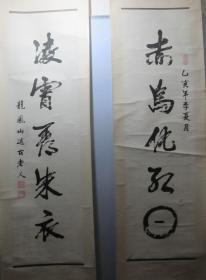 乙亥年季夏月
赤烏紅日
凌霄朱衣
龍鳳山古老人